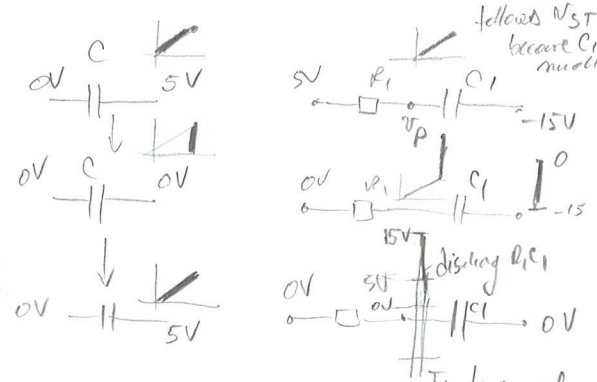 C
0V 5V
C
0V 0V
0V 5V
follows VST
because C1
5V R1 C1
Vp -15V
0V R1 C1 0
-15
15V
discharg R1C1
5V
0V 0V C1 0V